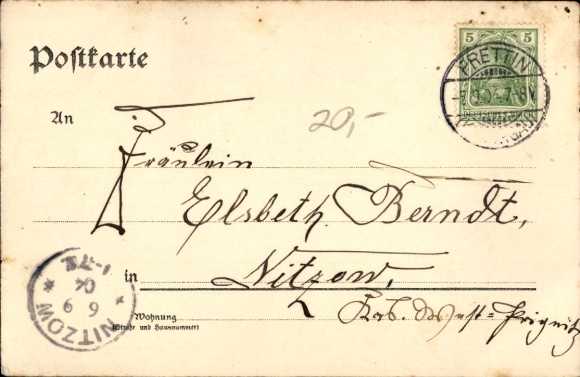 Postkarte
5 5
PRETTIN
DEUTSCHES REICH
An
20,-
Fräulein
Elsbeth Berndt,
in Nitzow,
Wohnung
(Straße und Hausnummer)
West-Prignitz
NITZOW
6 9
04